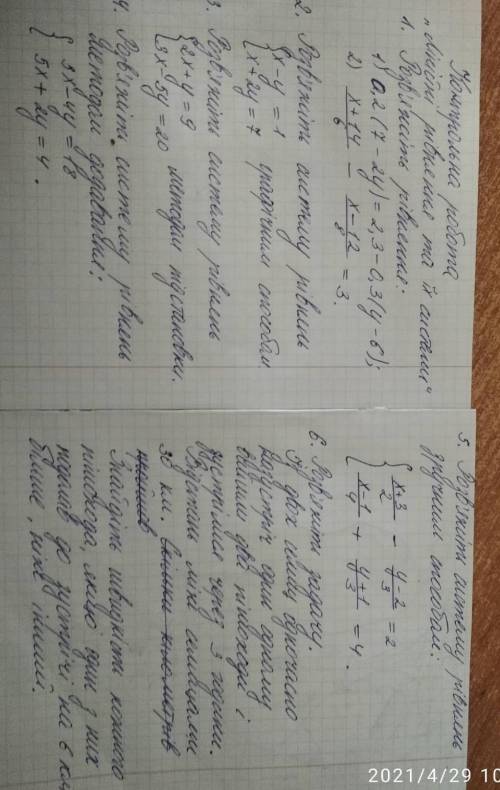 Контрольна робота
„Лінійні рівняння та їх системи"
1. Розв'яжіть рівняння:
1) 0,2(7-2y)=2,3-0,3(y-6);
2) x+14/6 - x-12/8 = 3.
2. Розв'яжіть систему рівнянь
{x-y=1
x+2y=7 графічним способом
3. Розв'яжіть систему рівнянь
{2x+y=9
3x-5y=20 методом підстановки.
4. Розв'яжіть систему рівнянь
методом додавання:
{3x-4y=18
5x+2y=4.
5. Розв'яжіть систему рівнянь
зручним способом:
{x+3/2 - y-2/3 = 2
x-1/4 + y+1/3 = 4.
6. Розв'яжіть задачу.
Із двох селищ одночасно
назустріч один одному
вийшли два пішоходи і
зустрілися через 3 години.
Відстань між селищами
30 км. Скільки кілометрів
Знайдіть швидкість кожного
пішохода, якщо один з них
пройшов до зустрічі на 6 км
більше, ніж інший.
2021/4/29 10